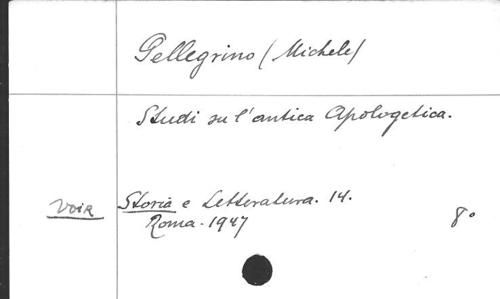 Pellegrino (Michele)
Studi su l'antica Apologetica.
Voir Storia e Letteratura. 14.
Roma - 1947 8°